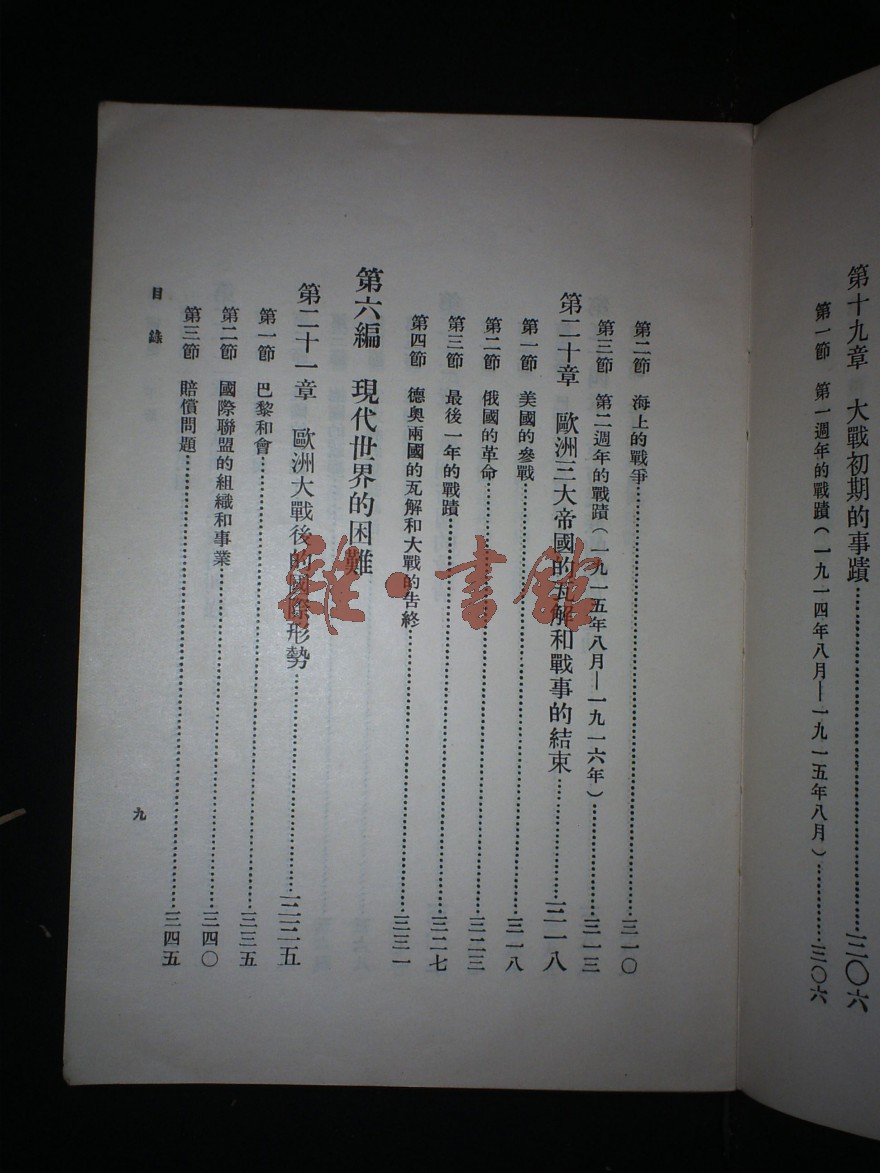 第十九章 大戰初期的事蹟……三〇六
第一節 第一週年的戰蹟(一九一四年八月—一九一五年八月)……三〇六
第二節 海上的戰爭……三一〇
第三節 第二週年的戰蹟(一九一五年八月—一九一六年)……三一三
第二十章 歐洲三大帝國的瓦解和戰事的結束……三一八
第一節 美國的參戰……三一八
第二節 俄國的革命……三二三
第三節 最後一年的戰蹟……三二七
第四節 德奧兩國的瓦解和大戰的告終……三三一
第六編 現代世界的困難
第二十一章 歐洲大戰後的國際形勢……三三五
第一節 巴黎和會……三三五
第二節 國際聯盟的組織和事業……三四〇
第三節 賠償問題……三四五
目錄
九
雜·書館